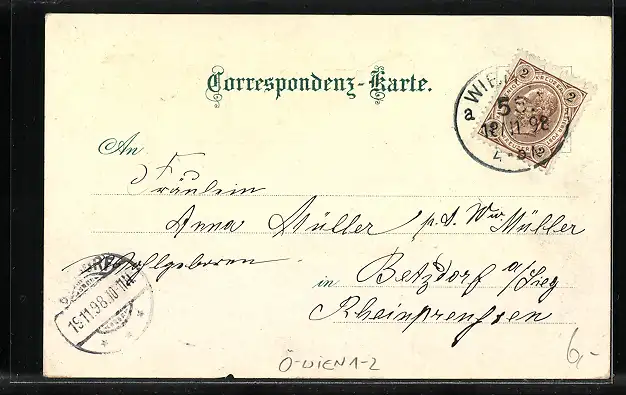 Correspondenz-Karte.
WIEN
a
18 11 98
2
2
2
An
Fräulein
Anna Müller p. A. Ww Müller
Wohlgeboren
in Betzdorf a/Sieg
Rheinpreußen
19.11.98.10-11V.
Ö-WIEN 1-2
6,-